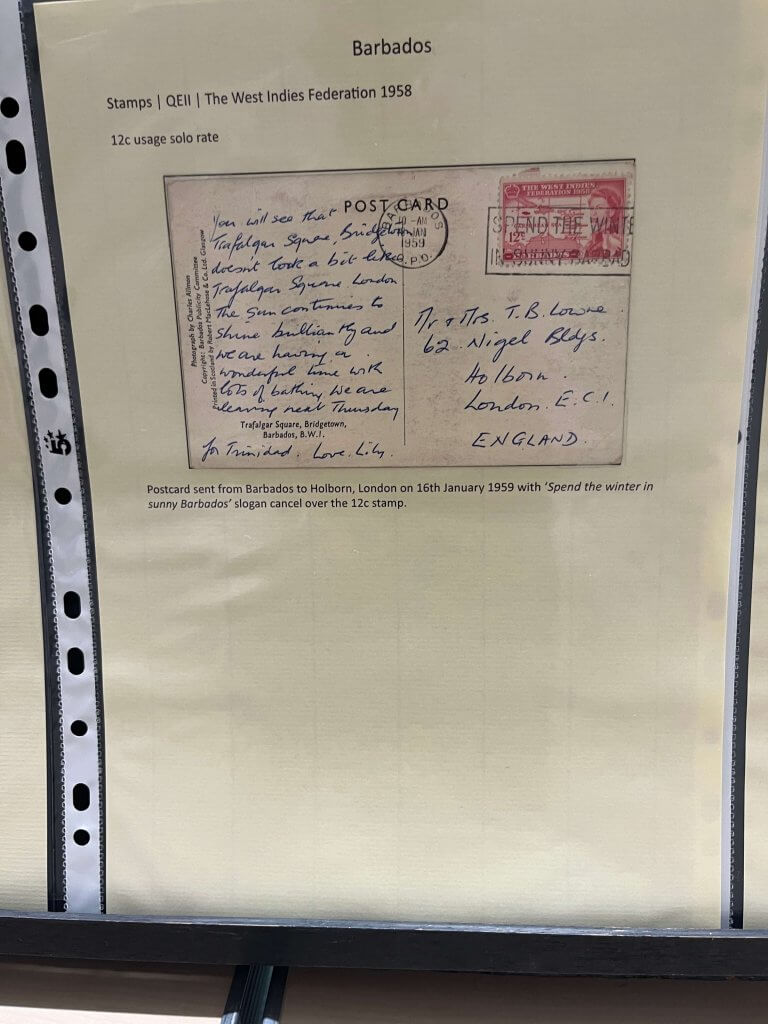 Barbados
Stamps | QEII | The West Indies Federation 1958
12c usage solo rate
POST CARD
You will see that
Trafalgar Square, Bridgetown
doesn't look a bit like
Trafalgar Square London
The sun continues to
shine brilliantly and
we are having a
wonderful time with
lots of bathing. We are
leaving next Thursday
for Trinidad. Love, Lily.
Photograph by Charles Allmon
Copyright: Barbados Publicity Committee
Printed in Scotland by Robert MacLehose & Co. Ltd. Glasgow
Trafalgar Square, Bridgetown,
Barbados, B.W.I.
BARBADOS
10 - AM
JAN
1959
G.P.O.
THE WEST INDIES
FEDERATION 1958
12c
BARBADOS
SPEND THE WINTE
IN SUNNY BARBAD
Mr & Mrs. T.B. Lowne.
62. Nigel Bldgs.
Holborn.
London. E.C.1.
ENGLAND.
Postcard sent from Barbados to Holborn, London on 16th January 1959 with 'Spend the winter in
sunny Barbados' slogan cancel over the 12c stamp.